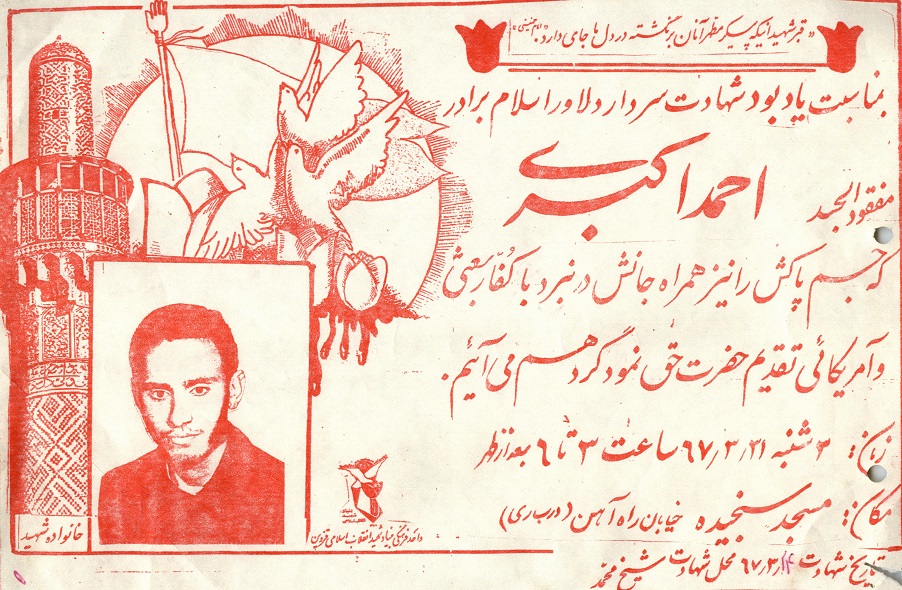 «قبر شهید آنیکه پیکر مطهر آنان برنگشته در دل ها جای دارد.» «امام خمینی»
بمناسبت یادبود شهادت سردار دلاور اسلام برادر
مفقود الجسد احمد اکبری
که جسم پاکش را نیز همراه جانش در نبرد با کفار بعثی
و آمریکائی تقدیم حضرت حق نمود گرد هم می آئیم.
زمان: ۳ شنبه ۶۷٫۳٫۳۱ ساعت ۳ تا ۶ بعد از ظهر
مکان: مسجد سنجیده خیابان راه آهن (درباری)
تاریخ شهادت ۶۷٫۳٫۱۴ محل شهادت شیخ محمد
خانواده شهید
واحد فرهنگی بنیاد شهید انقلاب اسلامی قزوین